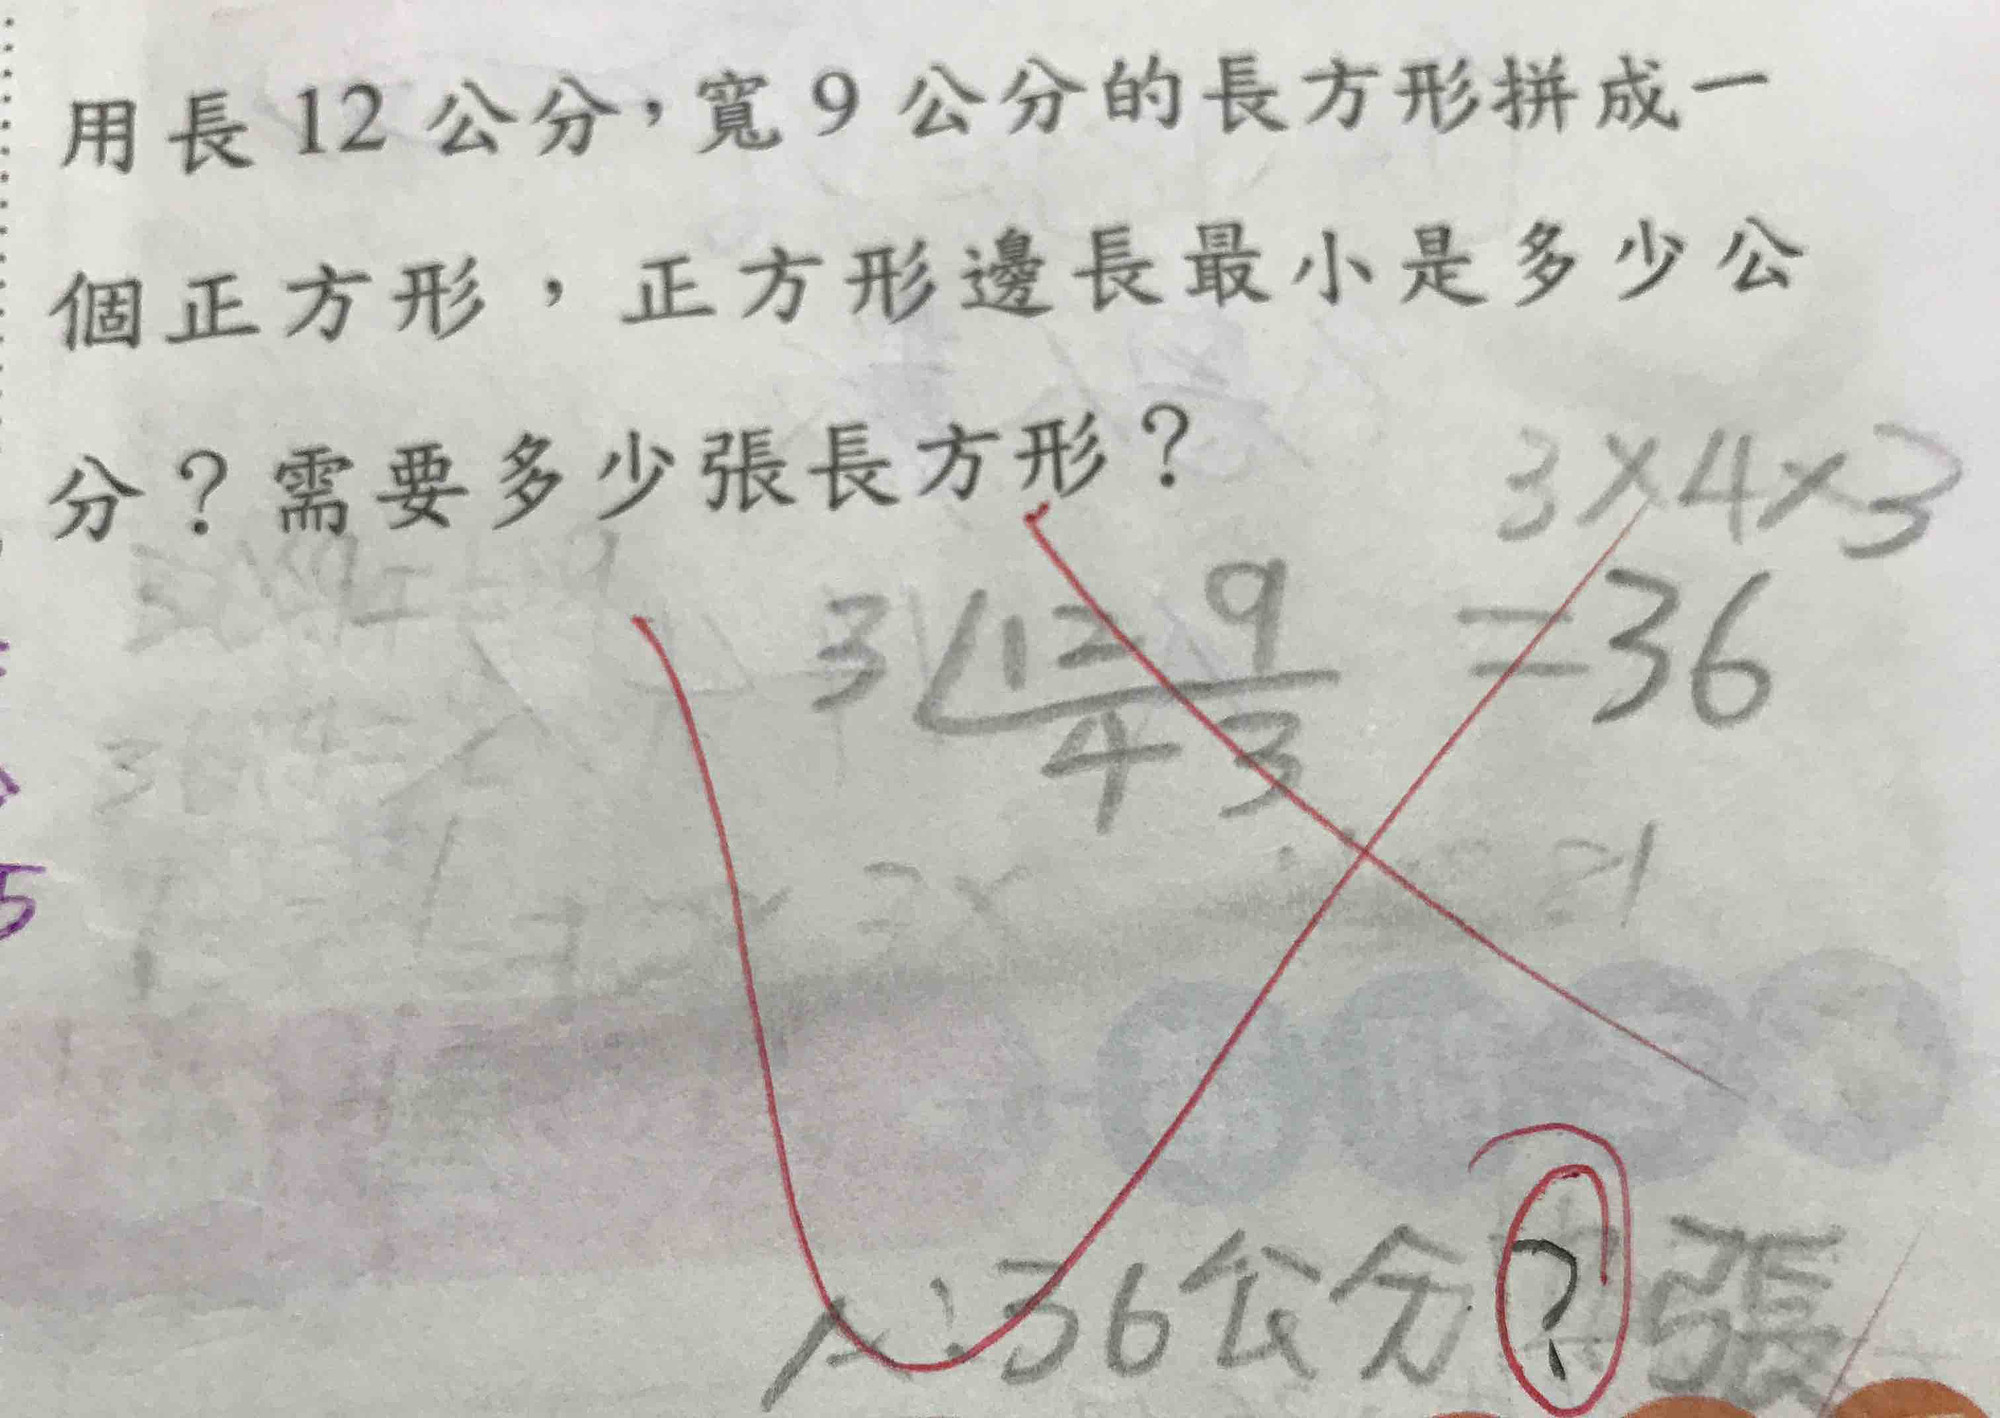 用長 12 公分，寬 9 公分的長方形拼成一
個正方形，正方形邊長最小是多少公
分？需要多少張長方形？
3×4×3
3 12 9
=36
4 3
A:36公分 ? 張
5